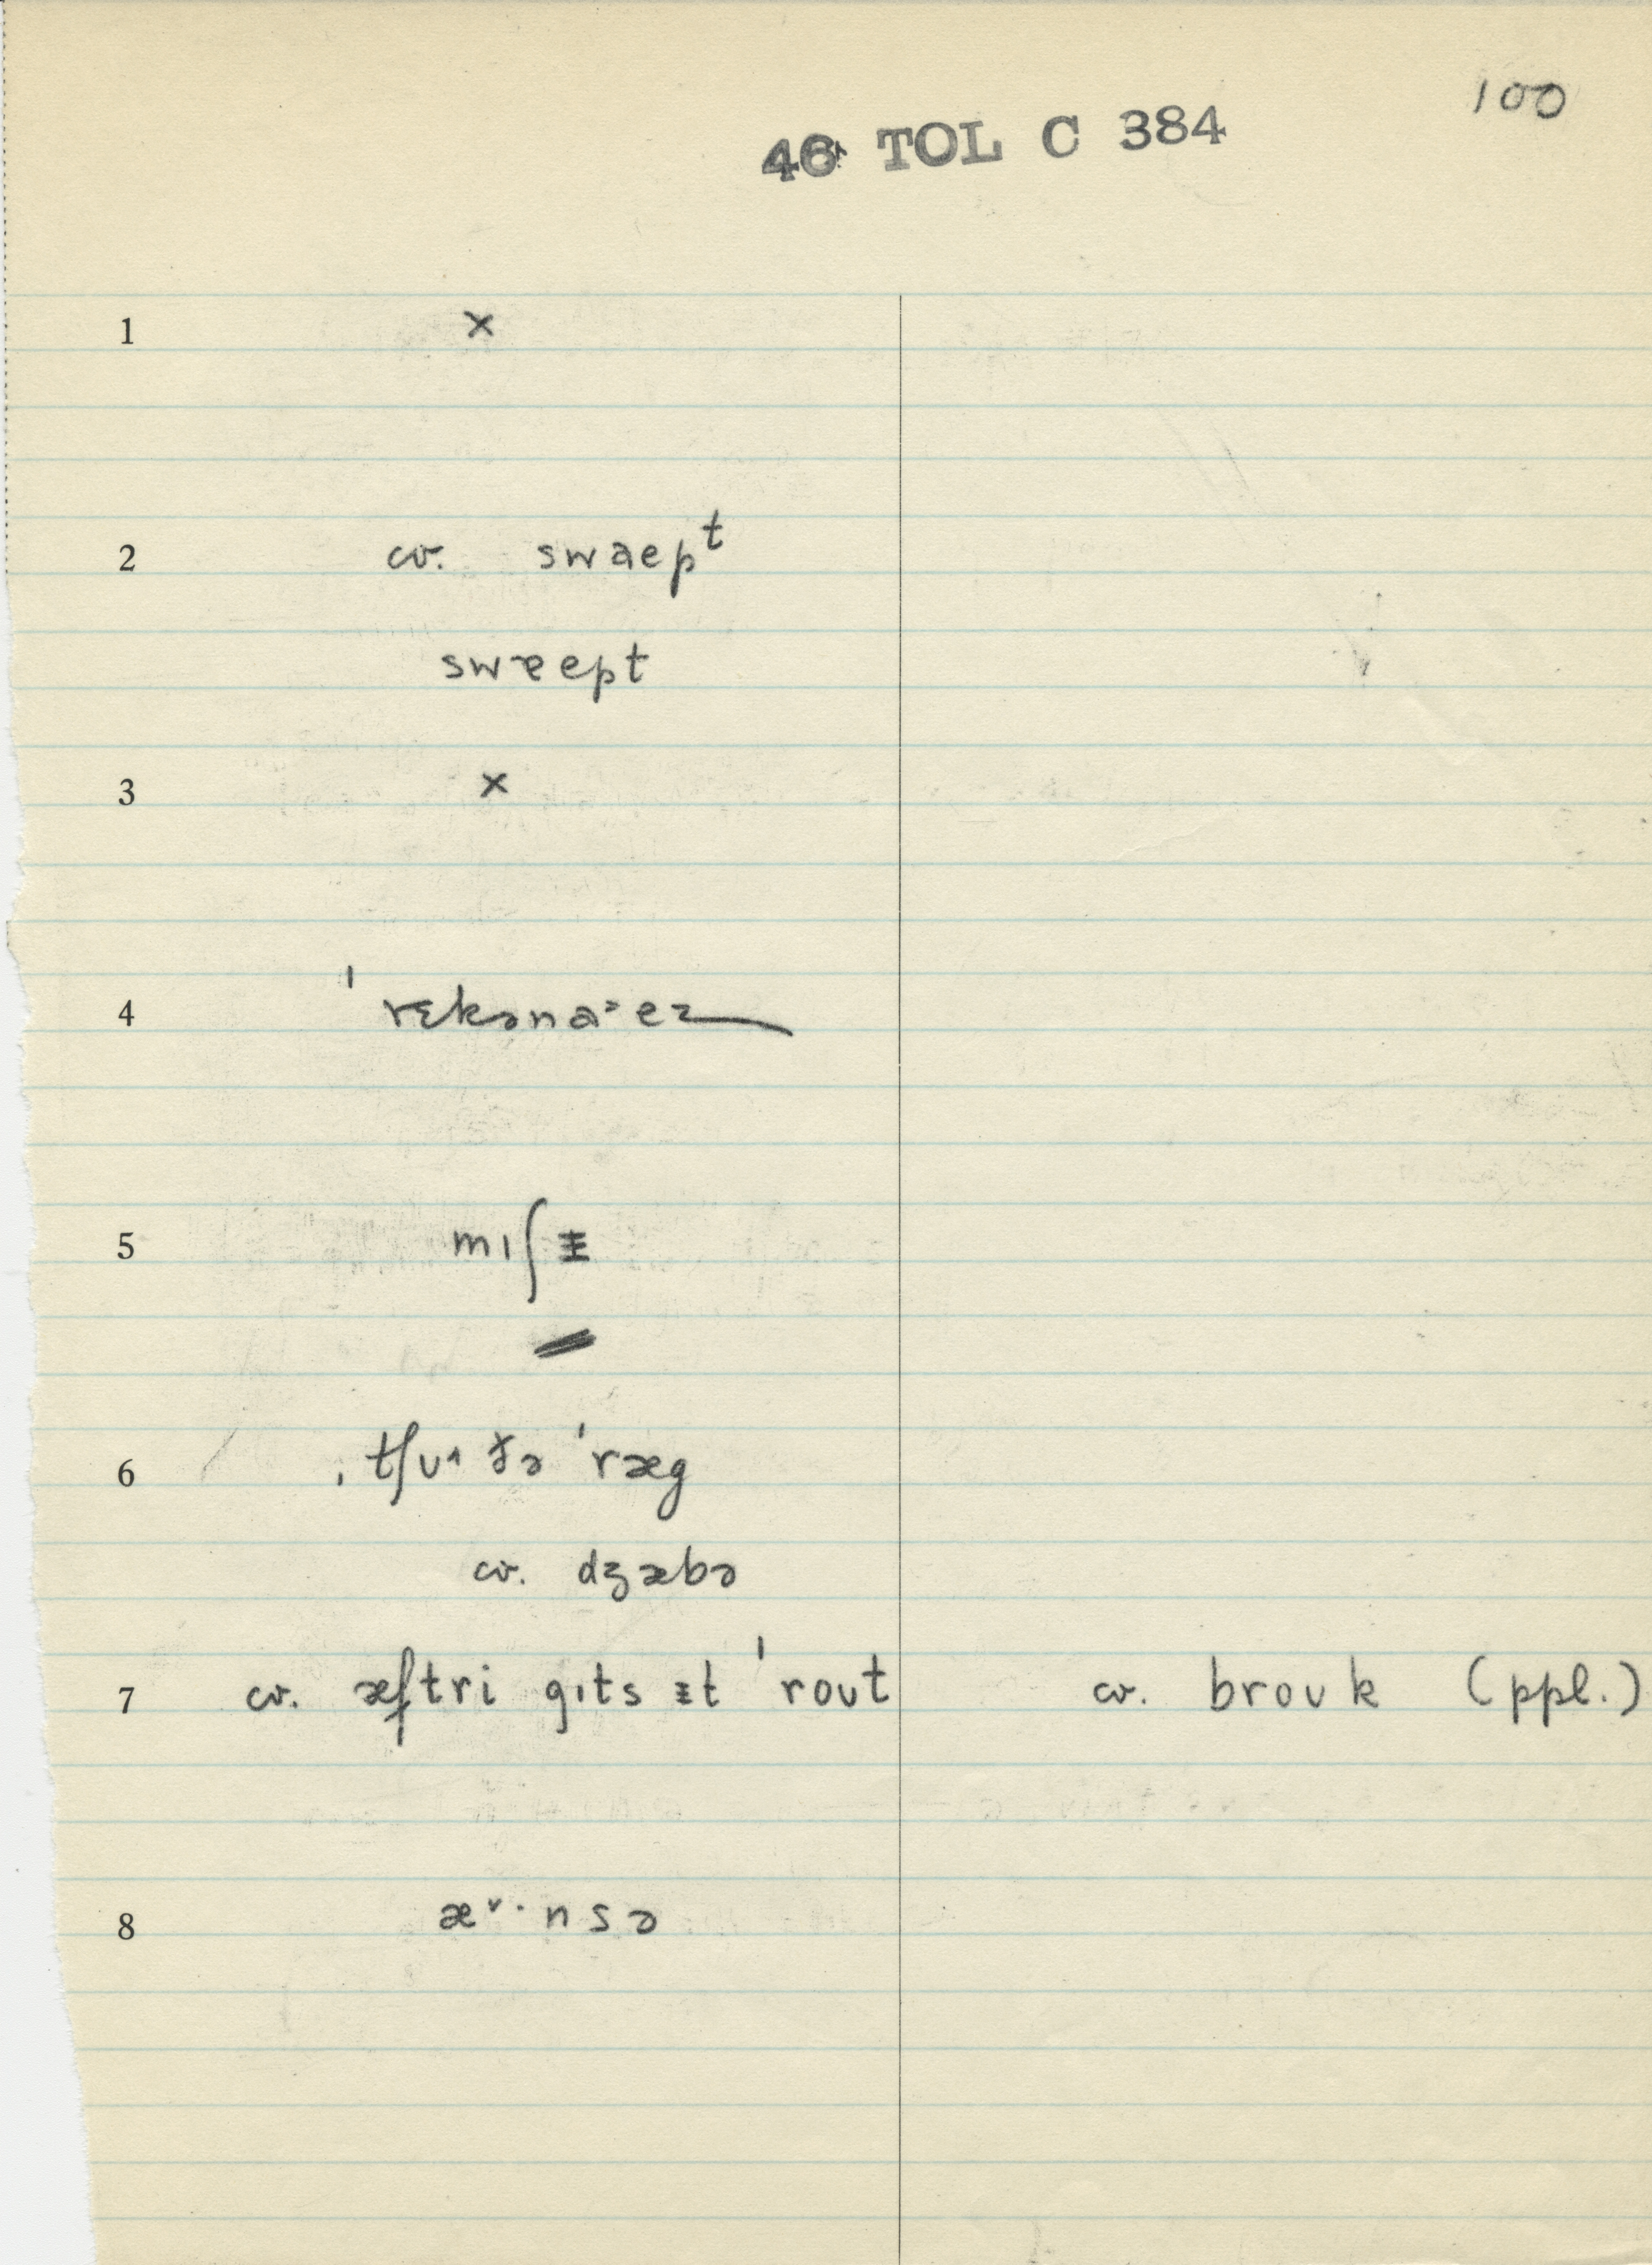 100
46 TOL C 384
1 ×
2 cv. swaepᵗ
swɐept
3 ×
4 ˈrɛkənaᵊez
5 mɪʃᵻ
6 ˌtʃʊ˄ ðə ˈræg
cv. dʒæbə
7 cv. æftri gɪts ɪt ˈroʊt cv. broʊk (ppl.)
8 æ˅·nsə